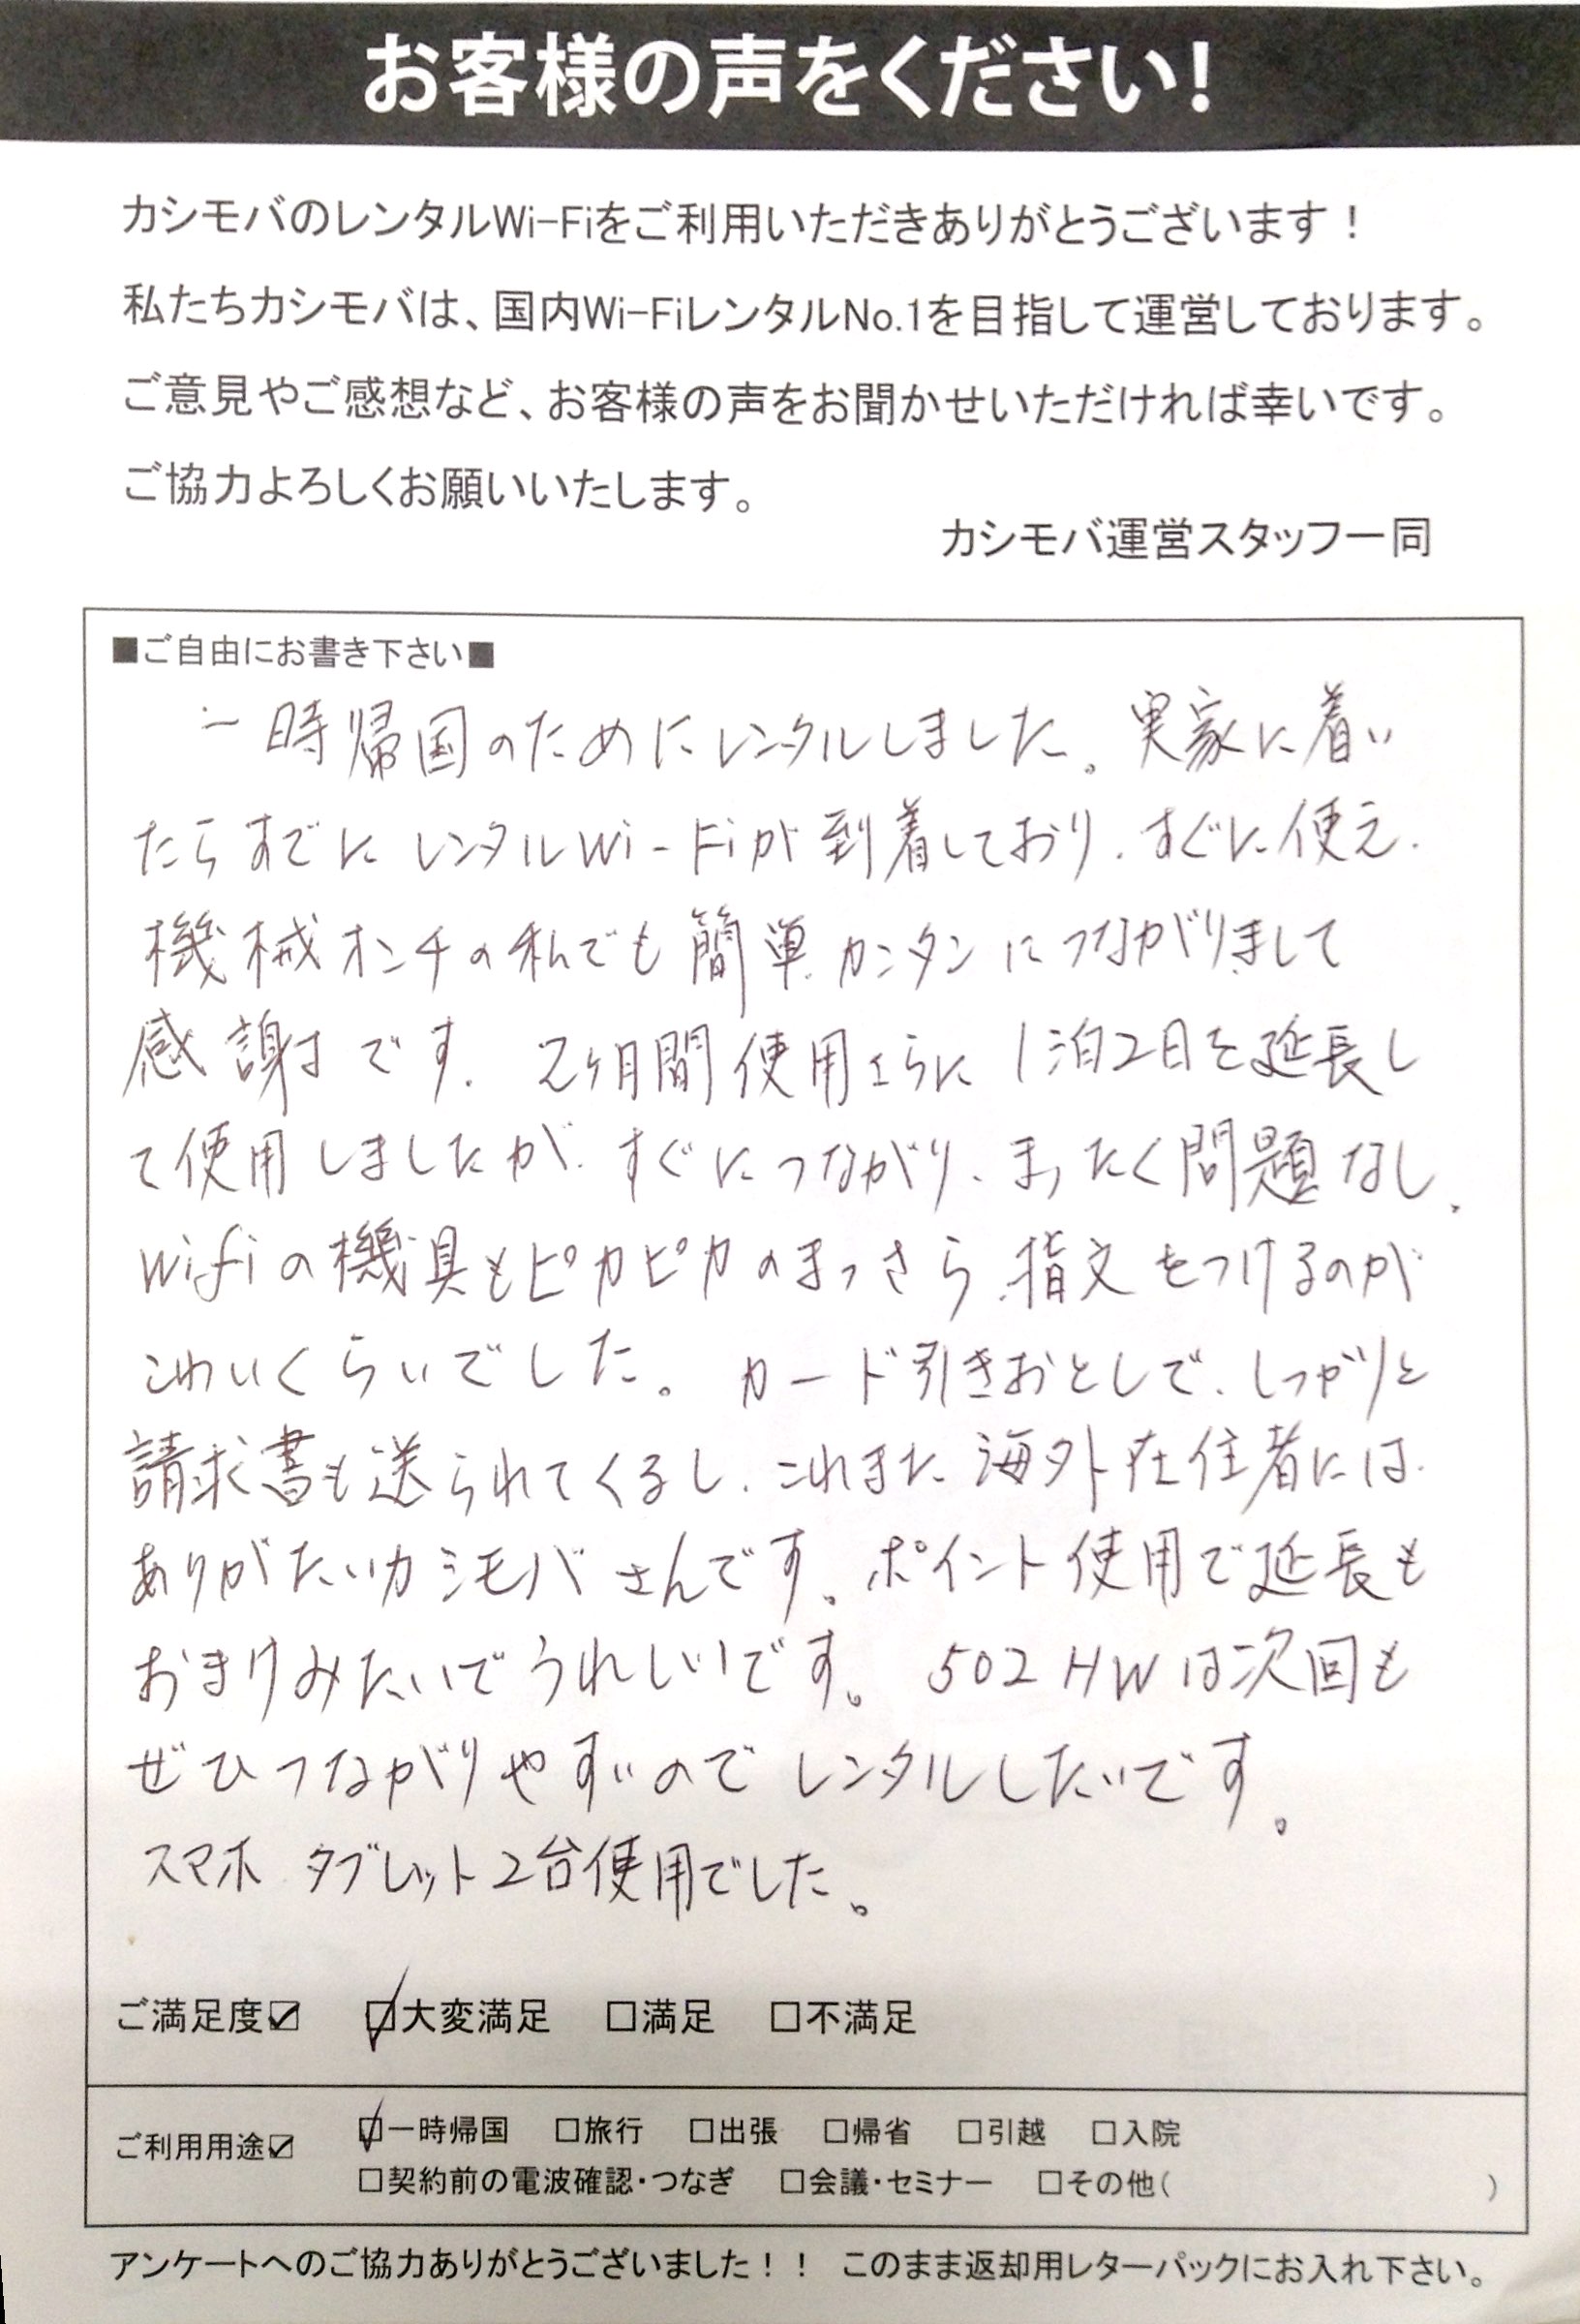 お客様の声をください!
カシモバのレンタルWi-Fiをご利用いただきありがとうございます！
私たちカシモバは、国内Wi-FiレンタルNo.1を目指して運営しております。
ご意見やご感想など、お客様の声をお聞かせいただければ幸いです。
ご協力よろしくお願いいたします。
カシモバ運営スタッフ一同
■ご自由にお書き下さい■
一時帰国のためにレンタルしました。実家に着い
たらすでにレンタルWi-Fiが到着しており、すぐに使え、
機械オンチの私でも簡単カンタンにつながりまして
感謝です。2ヶ月間使用さらに1泊2日を延長し
て使用しましたが、すぐにつながり、まったく問題なし。
Wifiの機具もピカピカのまっさら、指文をつけるのが
こわいくらいでした。カード引きおとしで、しっかりと
請求書も送られてくるし、これまた海外在住者には
ありがたいカシモバさんです。ポイント使用で延長も
おまけみたいでうれしいです。502HWは次回も
ぜひつながりやすいのでレンタルしたいです。
スマホ タブレット2台使用でした。
ご満足度☑ ☑大変満足 □満足 □不満足
ご利用用途☑ ☑一時帰国 □旅行 □出張 □帰省 □引越 □入院
□契約前の電波確認・つなぎ □会議・セミナー □その他( )
アンケートへのご協力ありがとうございました！！ このまま返却用レターパックにお入れ下さい。